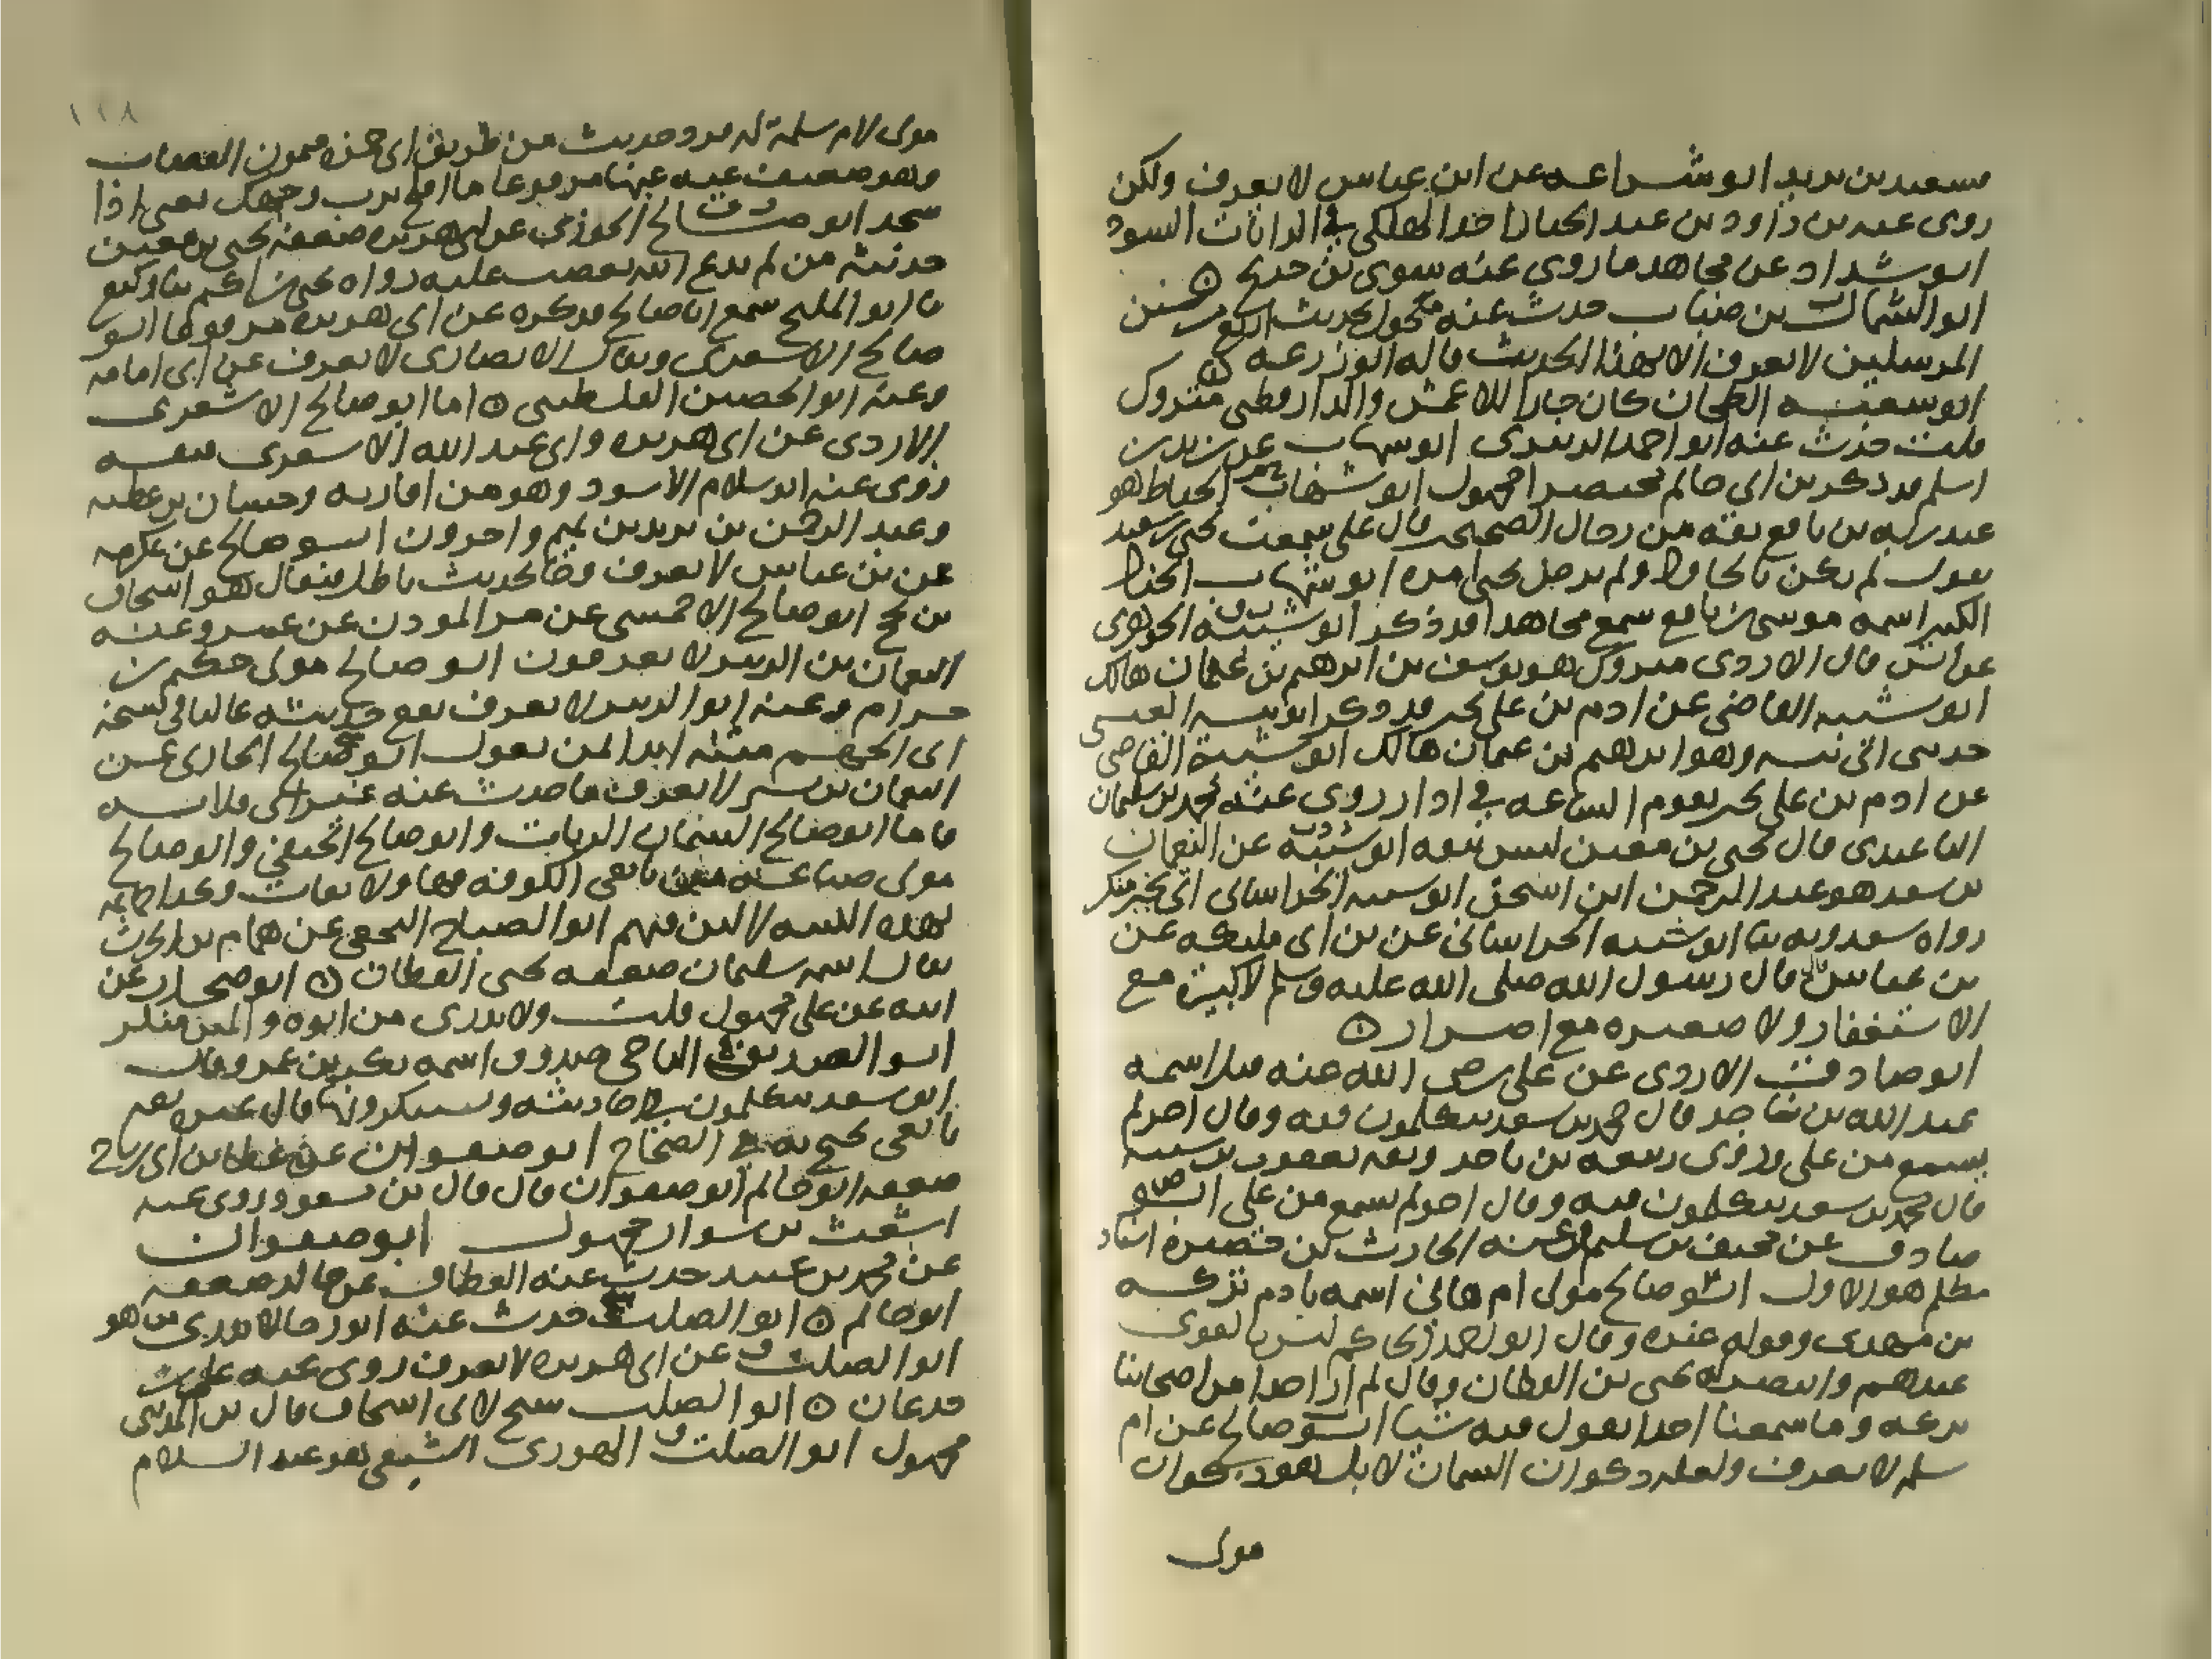 سعيد بن يزيد ابو شراعه عن ابن عباس لا يعرف ولكن
روى عنه بن داود بن عبد الجبار احد الهلكى في الرايات السود
ابو شداد عن مجاهد ما روى عنه سوى بن جريج
ابو الشمال بن ضباب حدث عنه مكحول بحديث اربع من سنن
المرسلين لا يعرف الا بهذا الحديث قاله ابو زرعه
ابو شعبه الطحان كان جارا للاعمش والدارقطني متروك
قلت حدث عنه ابو احمد الزبيري ابو شهاب عن بن زيد بن
اسلم قد ذكر بن ابي حاتم مختصرا مجهول ابو شهاب الحناط هو
عبد ربه بن نافع ثقه من رجال الصحيحين قال علي سمعت يحيى بن سعيد
يقول لم يكن بالحافظ ولم يرض يحيى امره ابو شهاب الحناط
الكبير اسمه موسى بن نافع سمع مجاهدا قد ذكر ابو شيبه الجوهرى
عن انس قال الازدى متروك هو يوسف بن ابرهيم بن عثمان هالك
ابو شيبه القاضى عن ادم بن علي بخبر قد ذكر ابو شيبه العبسى
جد بني ابى شيبه وهو ابرهيم بن عثمان هالك ابو شيبة القاضى
عن ادم بن علي بخبر تقوم الساعه في اذار روى عنه محمد بن سليمان
الباغندى قال يحيى بن معين ليس بثقه ابو شيبه عن النعمان
بن سعد هو عبد الرحمن ابن اسحق ابو شيبه الخراسانى اتى بخبر منكر
رواه سعدويه ثنا ابو شيبه الخراسانى عن بن ابى مليكه عن
بن عباس قال قال رسول الله صلى الله عليه وسلم لا كبيرة مع
الاستغفار ولا صغيره مع اصرار
ابو صادق الازدى عن علي رضى الله عنه قيل اسمه
عبد الله بن ناجد قال محمد بن سعد يتكلمون فيه وقال اخر لم
يسمع من على وروى ربيعه بن ناجد وثقه يعقوب بن شيبه
قال محمد بن سعد يتكلمون فيه وقال اخر لم يسمع من على ابو
صادق عن مخنف بن سليم وعنه الحارث بن حصيرة اسناد
مظلم هو الاول ابو صالح مولى ام هانئ اسمه باذم تركه
بن مهدى وقواه غيره وقال ابو احمد الحاكم ليس بالقوى
عندهم وانتصر له يحيى بن القطان وقال لم ار احدا من اصحابنا
تركه وما سمعنا احدا يقول فيه شيا ابو صالح عن ام
سلمه لا يعرف ولعله ذكوان السمان لا بل هو ذكوان
مولى
١١٨
مولى لام سلمة له فرد وحديث من طريق ابى حمزه ميمون القصاب
وهو ضعيف عنه عنها مرفوعا يا افلح ترب وجهك يعنى اذا
سجد ابو صالح الخوزى عن ابى هريره ضعفه يحيى بن معين
حديثه من لم يدع الله يغضب عليه رواه يحيى بن اكثم ثنا وكيع
ثنا ابو المليح سمع ابا صالح فذكره عن ابى هريره مرفوعا ابو
صالح الاشعرى ويقال الانصارى لا يعرف عن ابى امامه
وعنه ابو الحصين الفلسطينى اما ابو صالح الاشعرى
الاردى عن ابى هريره وابى عبد الله الاشعرى فثقه
روى عنه ابو سلام الاسود وهو من اقاربه وحسان بن عطيه
وعبد الرحمن بن يزيد بن تميم واخرون ابو صالح عن عكرمه
عن بن عباس لا يعرف والحديث باطل فيقال هو اسحاق
بن نجيح ابو صالح الاحمسى عن مر المؤذن عن عمرو عنه
النعمان بن الزبير لا يعرفون ابو صالح مولى حكيم بن
حزام وعنه ابو الزبير لا يعرف يقع حديثه عاليا فى نسخة
ابى الجهم متنه ابدا بمن تعول ابو صالح الحارثى عن
النعمان بن بشير لا يعرف ما حدث عنه غير ابى قلابه
فاما ابو صالح السمان الزيات وابو صالح الحنفى وابو صالح
مولى ضباعه فمن تابعى الكوفه وما ولا ثقات وكذا جماعه
بهذه الكنيه لا لين فيهم ابو الصباح النخعى عن همام بن الحارث
يقال اسمه سليمان ضعفه يحيى القطان ابو صحار عن
ابيه عن على مجهول قلت ولا يدرى من ابوه والمتن منكر
ابو الصديق الناجى صدوق اسمه بكر بن عمرو قال
ابن سعد يتكلمون في احاديثه ويستنكرونها قال غيره ثقه
تابعى يحتج به في الصحاح ابو صفوان عن عطا بن ابى رباح
ضعفه ابو حاتم ابو صفوان قال قال بن مسعود روى عنه
اشعث بن سوار مجهول ابو صفوان
عن محمد بن عبيد حدث عنه القطان عن خالد ضعفه
ابو حاتم ابو الصلت حدث عنه ابو رجا لا يدرى من هو
ابو الصلت عن ابى هريره لا يعرف روى عنه على بن
جدعان ابو الصلت شيخ لابى اسحاق قال بن المدينى
مجهول ابو الصلت الهروى الشيعى هو عبد السلام